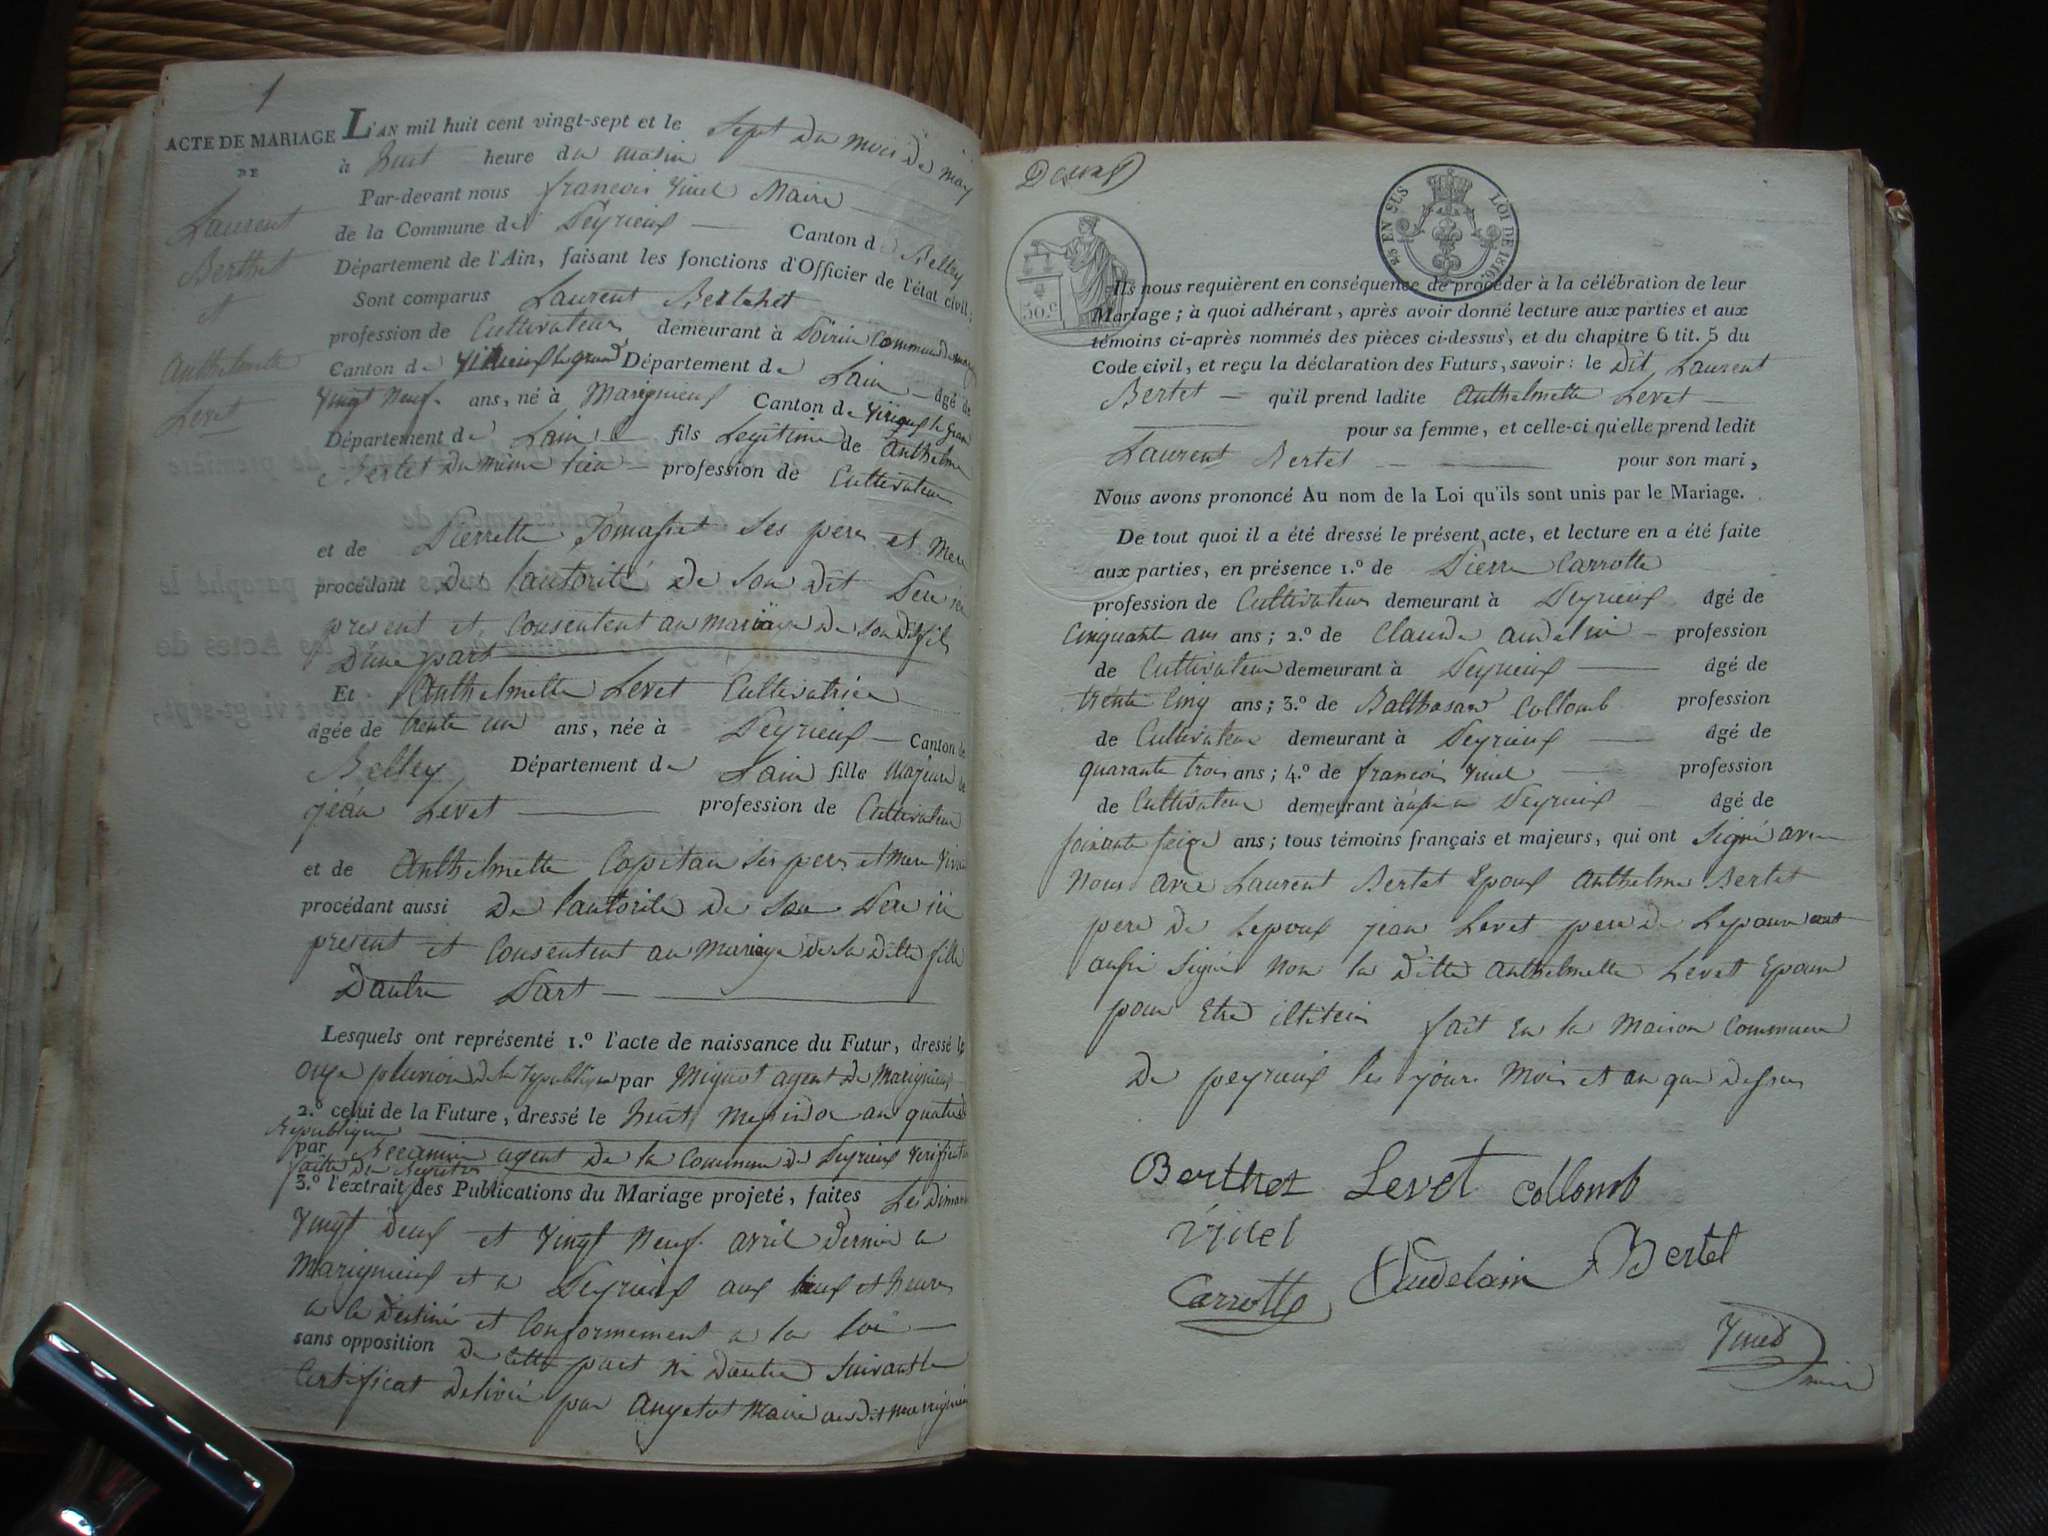 1
ACTE DE MARIAGE
DE
Laurent
Berthet
et
Anthelmette
Levet
L'AN mil huit cent vingt-sept et le sept du mois de may
à huit heure du matin
Par-devant nous françois Vinel Maire
de la Commune de Peyrieux Canton d Belley
Département de l'Ain, faisant les fonctions d'Officier de l'état civil,
Sont comparus Laurent Bertehet
profession de Cultivateur demeurant à Poirin Commune de
Canton de Virieux le grand Département de Lain âgé de
Vingt Neuf ans, né à Marignieux Canton de Virieux le Gran
Département de Lain fils Legitime de Anthelme
Bertet du même lieu profession de Cultivateur
et de Pierrette Tomasset ses pere et Mere
procédant de lautorité de son dit Pere ici
present et Consentent au mariage de son dit fils
Dune part
Et Anthelmette Levet Cultivatrice
âgée de trente un ans, née à Peyrieux Canton de
Belley Département de Lain fille Majeure de
jean Levet profession de Cultivateur
et de Anthelmette Capitan ses pere et mere
procédant aussi De lautorité de son Pere ici
present et Consentent au mariage de sa ditte fille
Dautre Part
Lesquels ont représenté 1.º l'acte de naissance du Futur, dressé le
onze pluviose de la republique par Mignot agent de Marignieux
2.º celui de la Future, dressé le huit Messidor an quatre de
Republique
par agent de la Commune de Peyrieux Verification
faitte du Registre
3.º l'extrait des Publications du Mariage projeté, faites Les Dimanche
Vingt Deux et Vingt Neuf avril Dernier a
Marignieux et a Peyrieux aux lieux et heures
a ce Destiné et Conformement a la Loi
sans opposition de cette part Ni Dautre Suivant le
Certificat Delivré par Angelot Maire au dit marignieu
30.C
25 EN SUS
LOI DE 1816.
Ils nous requièrent en conséquence de procéder à la célébration de leur
Mariage; à quoi adhérant, après avoir donné lecture aux parties et aux
témoins ci-après nommés des pièces ci-dessus, et du chapitre 6 tit. 5 du
Code civil, et reçu la déclaration des Futurs, savoir: le dit Laurent
Bertet qu'il prend ladite Anthelmette Levet
pour sa femme, et celle-ci qu'elle prend ledit
Laurent Bertet pour son mari,
Nous avons prononcé Au nom de la Loi qu'ils sont unis par le Mariage.
De tout quoi il a été dressé le présent acte, et lecture en a été faite
aux parties, en présence 1.º de Pierre Carrotte
profession de Cultivateur demeurant à Peyrieux âgé de
Cinquante ans ans; 2.º de Claude audelin profession
de Cultivateur demeurant à Peyrieux âgé de
trente Cinq ans; 3.º de Balthasard Collomb profession
de Cultivateur demeurant à Peyrieux âgé de
quarante trois ans; 4.º de françois Vinel profession
de Cultivateur demeurant à aussi a Peyrieux âgé de
soixante seize ans; tous témoins français et majeurs, qui ont Signé avec
Nous avec Laurent Bertet Epoux Anthelme Bertet
pere de Lepoux jean Levet pere de Lepouse ont
aussi signé Non la Ditte Anthelmette Levet Epouse
pour Etre fait En la Maison Commune
De peyrieux les jour Mois et an que dessus
Berthet Levet Collomb
Vinel
Carrotte Audelain Bertet
Vinel
maire